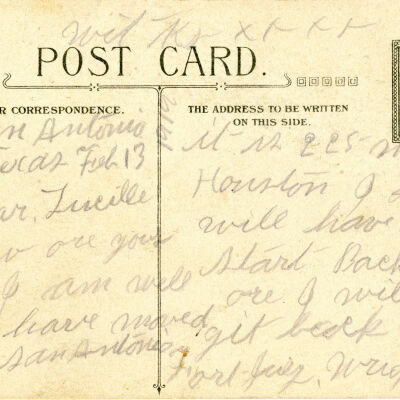 wit
x x x x
POST CARD.
R CORRESPONDENCE.
THE ADDRESS TO BE WRITTEN
ON THIS SIDE.
n Antonio
Texas Feb 13
ar, Lucille
w are your
I am well
have moved
San Antonio
it is 225
Houston I
will have
Start Back
ore I wil
git back